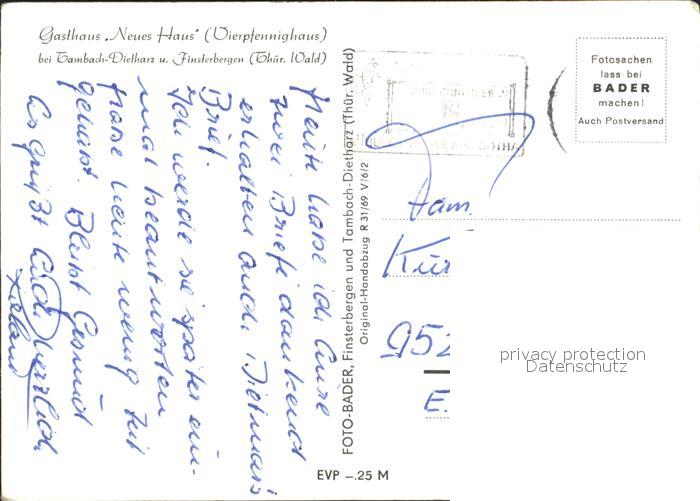 Gasthaus „Neues Haus" (Vierpfennighaus)
bei Tambach-Dietharz u. Finsterbergen (Thür. Wald)
Heute habe ich Eure
zwei Briefe dankend
erhalten auch Dietmars
Brief.
Ich werde sie später ein-
mal beantworten
habe heute wenig Zeit
gehabt. Bleibt Gesund
Es grüßt Euch herzlich
FOTO-BADER, Finsterbergen und Tambach-Dietharz (Thür. Wald)
Original-Handabzug R 31/69 V/6/2
EVP –.25 M
Fotosachen
lass bei
BADER
machen!
Auch Postversand
Fam.
Kur
952
E.
privacy protection
Datenschutz